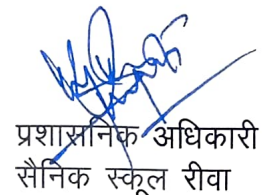 प्रशासनिक अधिकारी
सैनिक स्कूल रीवा